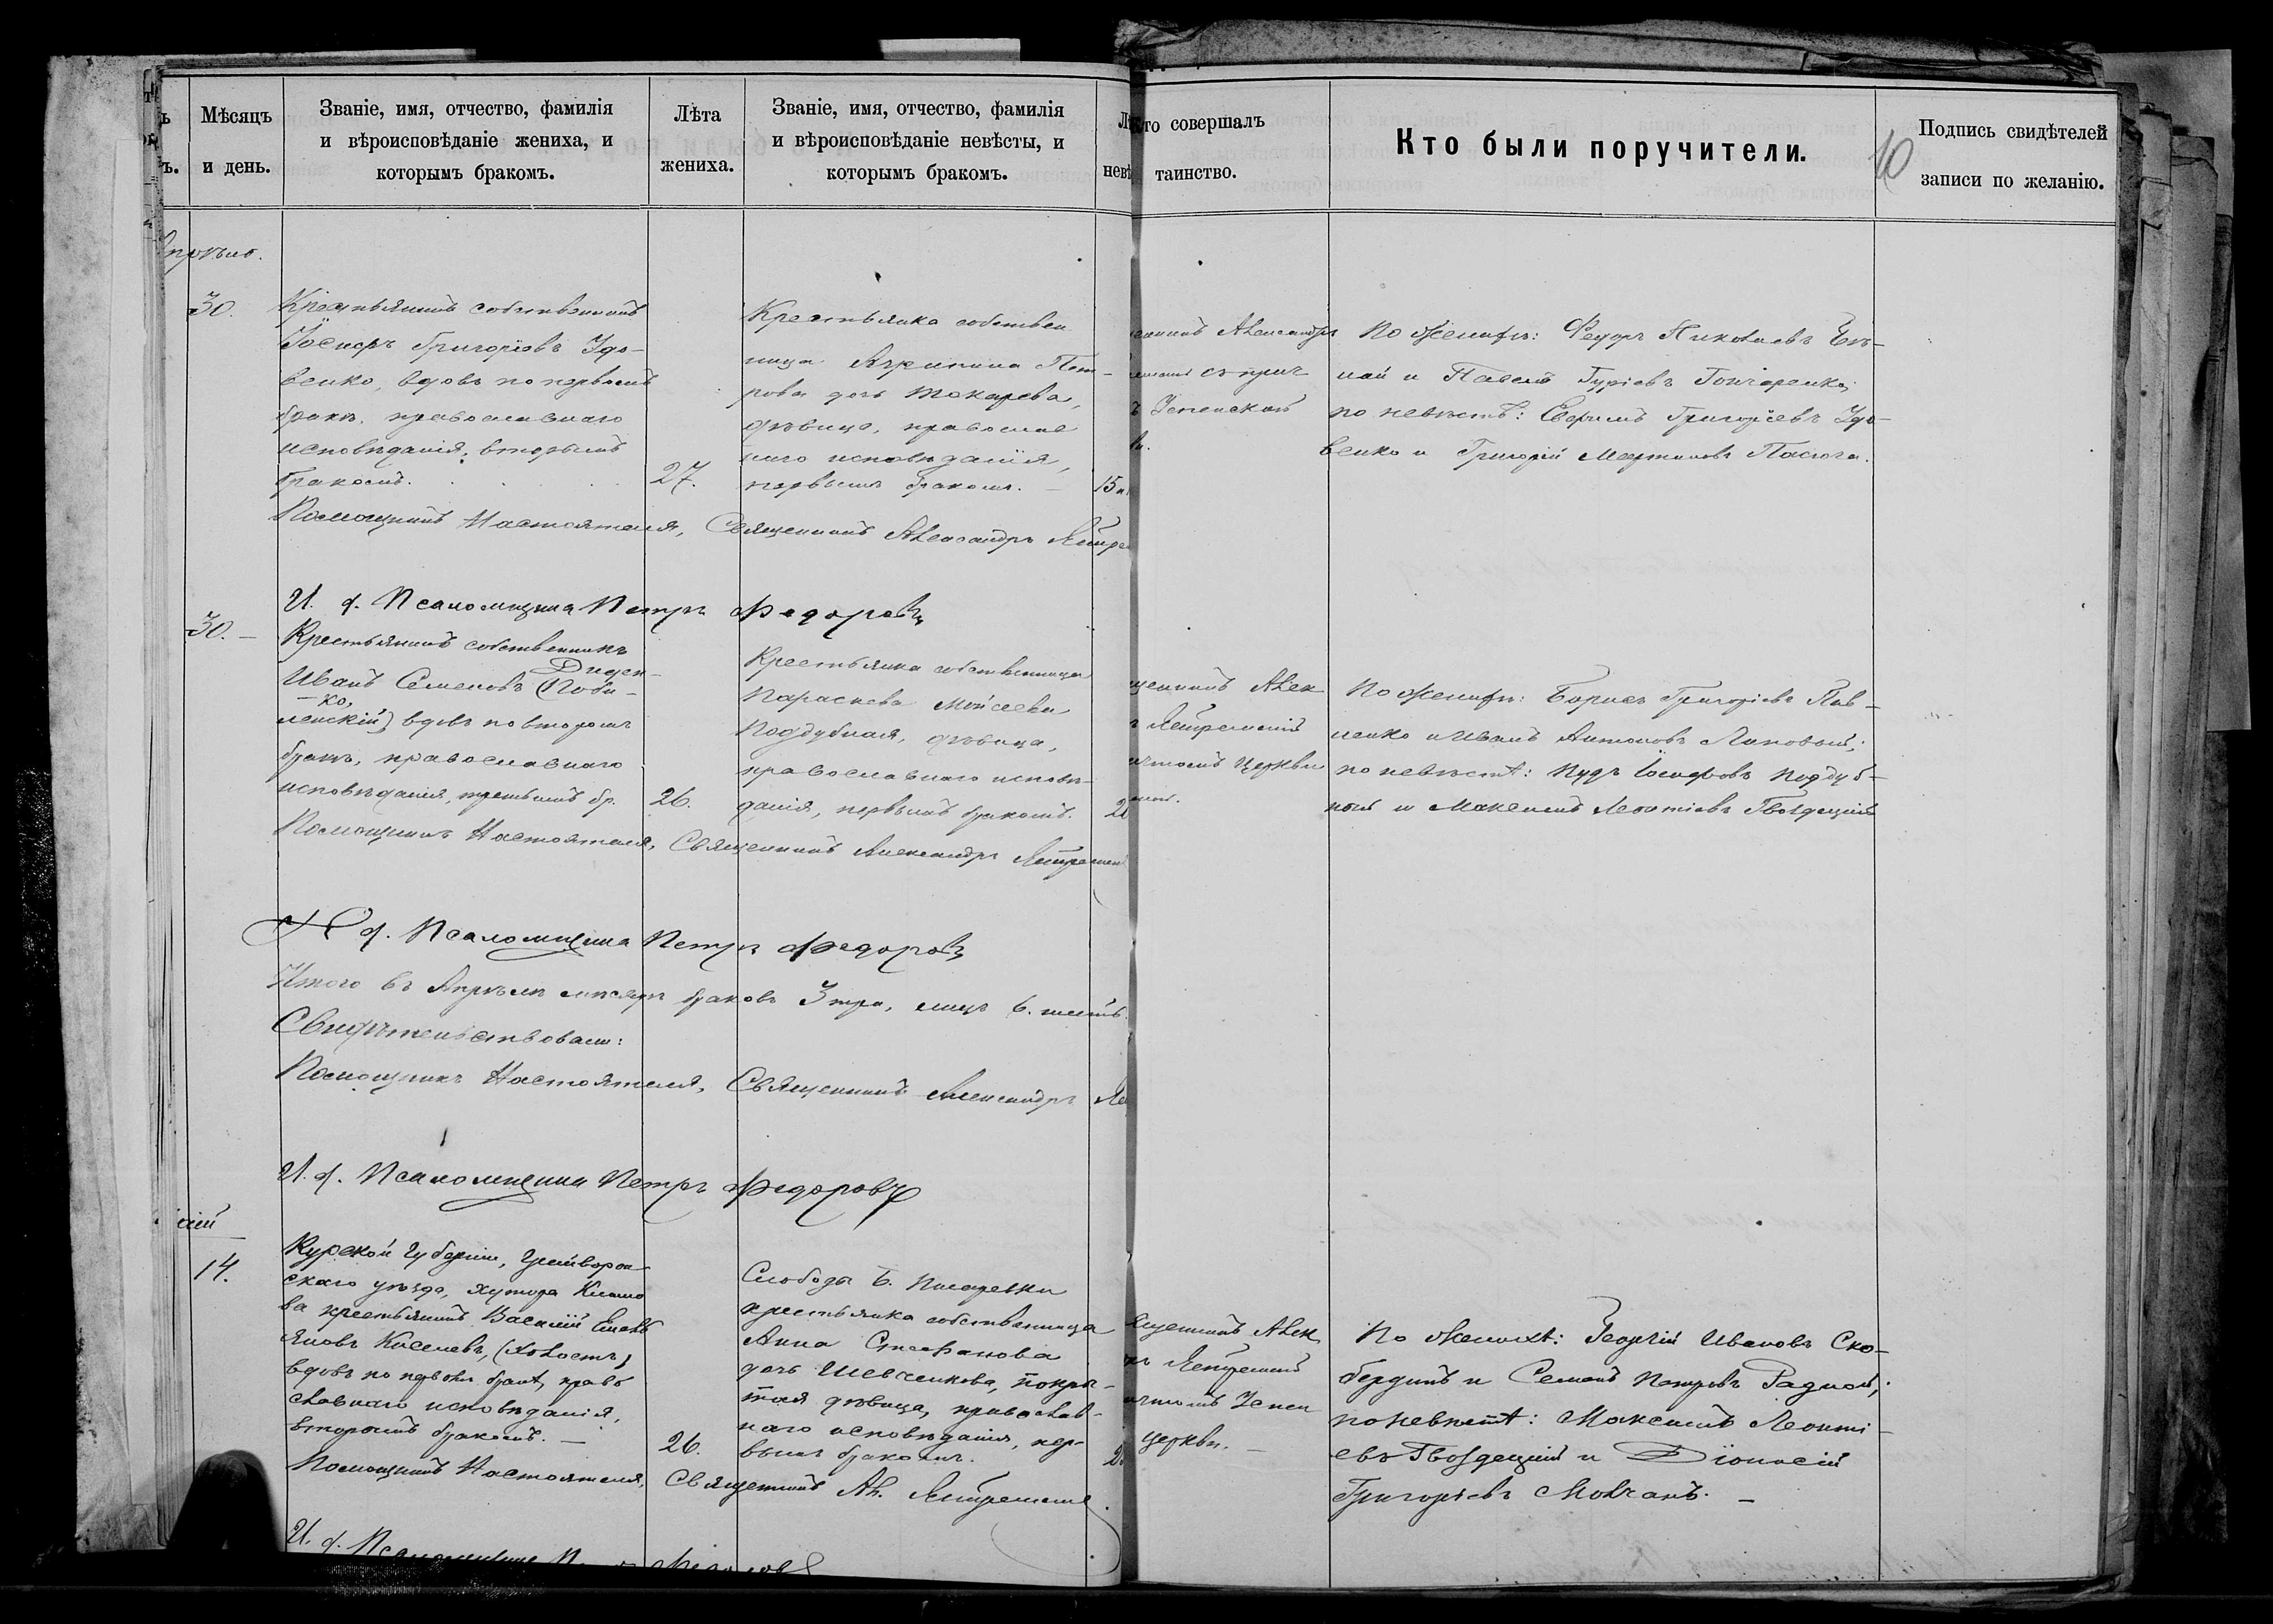 Мѣсяцъ
и день.
Званіе, имя, отчество, фамилія
и вѣроисповѣданіе жениха, и
которымъ бракомъ.
Лѣта
жениха.
Званіе, имя, отчество, фамилія
и вѣроисповѣданіе невѣсты, и
которымъ бракомъ.
то совершалъ
таинство.
Кто были поручители.
10
Подпись свидѣтелей
записи по желанію.
30.
Крестьянинъ собственникъ
Іосифъ Григоріевъ Удо-
венко, вдовъ по первомъ
бракѣ, православнаго
исповѣданія, вторымъ
бракомъ.
27.
Крестьянка собствен
ница Агрипина Пет-
рова дочь Токарева,
дѣвица, православ
наго исповѣданія,
первымъ бракомъ. —
15
Александръ
съ прич
Успенской
По женихѣ: Федоръ Николаевъ
и Павелъ Гуріевъ Гончаренко;
по невѣстѣ: Ефимъ Григоріевъ Удо-
венко и Григорій Мартиновъ Пасюга.
Помощникъ Настоятеля, Священникъ Александръ
И. д. Псаломщика Петръ Федоровъ
30. —
Крестьянинъ собственникъ
Иванъ Семеновъ Диден-
ко, (Поби-
ленскій) вдовъ по второмъ
бракѣ, православнаго
исповѣданія, третьимъ бр.
26.
Крестьянка собственница
Параскева Моисеева
Поддубная, дѣвица,
православнаго исповѣ-
данія, первымъ бракомъ.
церкви
По женихѣ: Борисъ Григоріевъ Пав-
ленко и Иванъ Антоновъ Липовый;
по невѣстѣ: Іосифовъ Поддуб-
ный и Максимъ Леонтіевъ Гвоздецкій
Помощникъ Настоятеля, Священникъ Александръ
И. д. Псаломщика Петръ Федоровъ
Итого въ Апрѣлѣ мѣсяцѣ браковъ 3 три, лицъ 6. шесть.
Свидѣтельствовали:
Помощникъ Настоятеля, Священникъ Александръ
И. д. Псаломщика Петръ Федоровъ
14.
Курской губерніи, Грайворон-
скаго уѣзда, хутора
крестьянинъ Василій Емель
яновъ Киселевъ, (Хвостъ)
вдовъ по первомъ бракѣ, право
славнаго исповѣданія,
вторымъ бракомъ. —
26.
Слободы Б. Писаревки
крестьянка собственница
Анна Стефанова
дочь Шевченкова, покры-
тая дѣвица, православ-
наго исповѣданія, пер-
вымъ бракомъ.
церкви. —
По женихѣ: Георгій Ивановъ Ско-
бердинъ и Семенъ Петровъ Радной;
по невѣстѣ: Максимъ Леонті-
евъ Гвоздецкій и Діонисій
Григоріевъ Мовчанъ. —
Помощникъ Настоятеля, Священникъ Ал.
И. д. Псаломщика